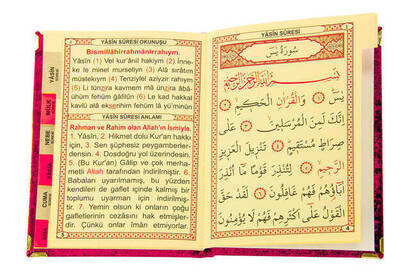 YÂSÎN SÛRESİ OKUNUŞU
Bismillâhirrahmânirrahıym.
Yâsîn (1) Vel kur'ânil hakiym (2) İnne-
ke le minel murseliyn (3) Alâ sırâtım
müstekıym (4) Tenziylel aziyzir rahıym
(5) Li tünzira kavmem mâ ünzira âbâ-
ühüm fehüm gâfilûn (6) Le kad hakkal
kavlü alâ ekserihim fehüm lâ yü'minûn
YÂSÎN SÛRESİ ANLAMI
Rahman ve Rahim olan Allah'ın İsmiyle.
1. Yâsîn, 2. Hikmet dolu Kur'an hakkı
için, 3. Sen şüphesiz peygamberler-
densin. 4. Dosdoğru yol üzerindesin.
5. (Bu Kur'an) Gâlip ve çok merha-
metli Allah tarafından indirilmiştir. 6.
Babaları uyarılmamış, bu yüzden
kendileri de gaflet içinde kalmış bir
toplumu uyarman için indirilmiş-
tir. 7. Yemin olsun ki onların çoğu
gafletlerinin cezâsını hak etmişler-
dir. Çünkü onlar îman etmiyorlar.
YÂSİN SÛRESİ
سُورَةُ يٰسٓ
بِسْمِ اللهِ الرَّحْمٰنِ الرَّحِيمِ
يٰسٓ ﴿١﴾ وَالْقُرْاٰنِ الْحَكِيمِ ﴿٢﴾
اِنَّكَ لَمِنَ الْمُرْسَلِينَ ﴿٣﴾ عَلٰى
صِرَاطٍ مُسْتَقِيمٍ ﴿٤﴾ تَنْزِيلَ الْعَزِيزِ
الرَّحِيمِ ﴿٥﴾ لِتُنْذِرَ قَوْمًا مَٓا اُنْذِرَ
اٰبَٓاؤُهُمْ فَهُمْ غَافِلُونَ ﴿٦﴾ لَقَدْ حَقَّ
الْقَوْلُ عَلٰٓى اَكْثَرِهِمْ فَهُمْ لَا يُؤْمِنُونَ
YÂSÎN
MÜLK
NEBE
CUMA